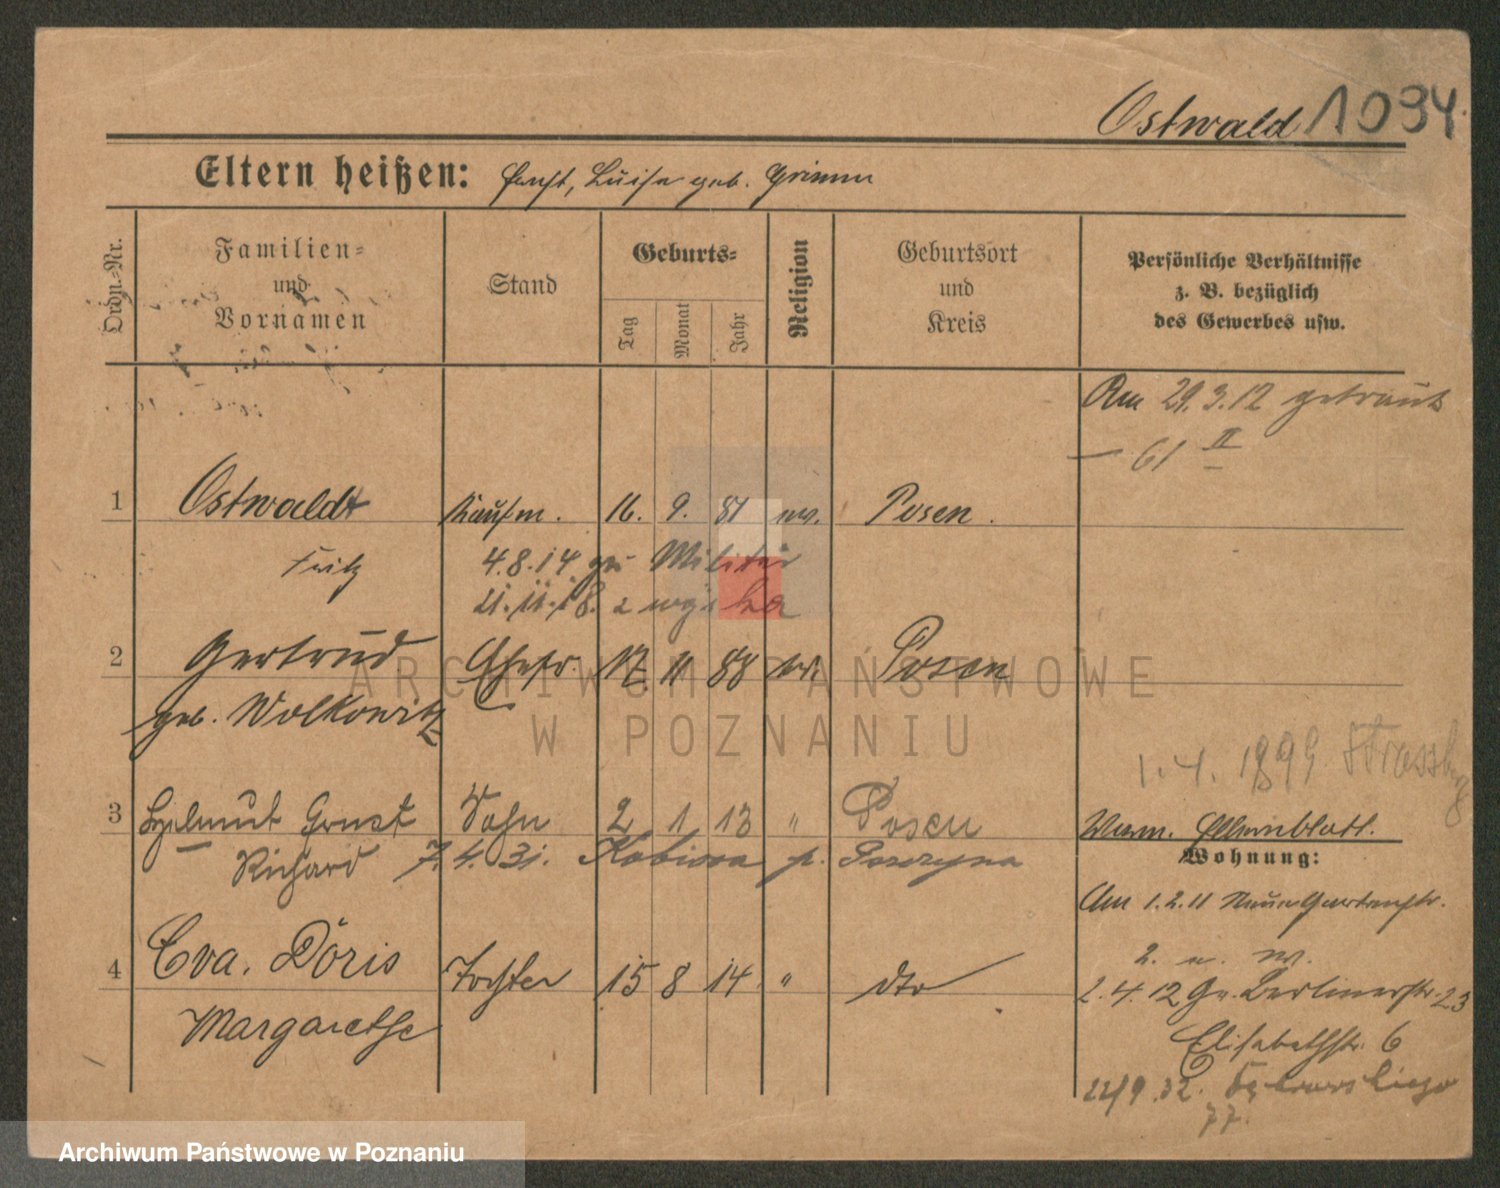 Ostwald 1094
Eltern heißen: Ernst, Luise geb. Grimm
Ordn.-Nr.
Familien-
und
Vornamen
Stand
Geburts-
Tag
Monat
Jahr
Religion
Geburtsort
und
Kreis
Persönliche Verhältnisse
z. B. bezüglich
des Gewerbes usw.
Am 29.3.12 getraut
— 61 II
1 Ostwaldt Kaufm. 16. 9. 81 Posen.
Fritz 4.8.14 zu Militär
21.11.18.
2 Gertrud Ehefr. 17. 11 88 Posen
geb. Wolkowitz
1.4.1899. Strassburg
3 Helmut Ernst Sohn 2 1 13 " Posen
Richard 7.4.31. p.
Elternblatt.
Wohnung:
Am 1.2.11 Neue Gartenstr.
2. u. W.
4 Eva. Doris Tochter 15 8 14. " dto
Margarethe
2.4.12 Gr. Berlinerstr. 23
Elisabethstr. 6
22/9.32. Dąbrowskiego
77.
ARCHIWUM PAŃSTWOWE
W POZNANIU
Archiwum Państwowe w Poznaniu